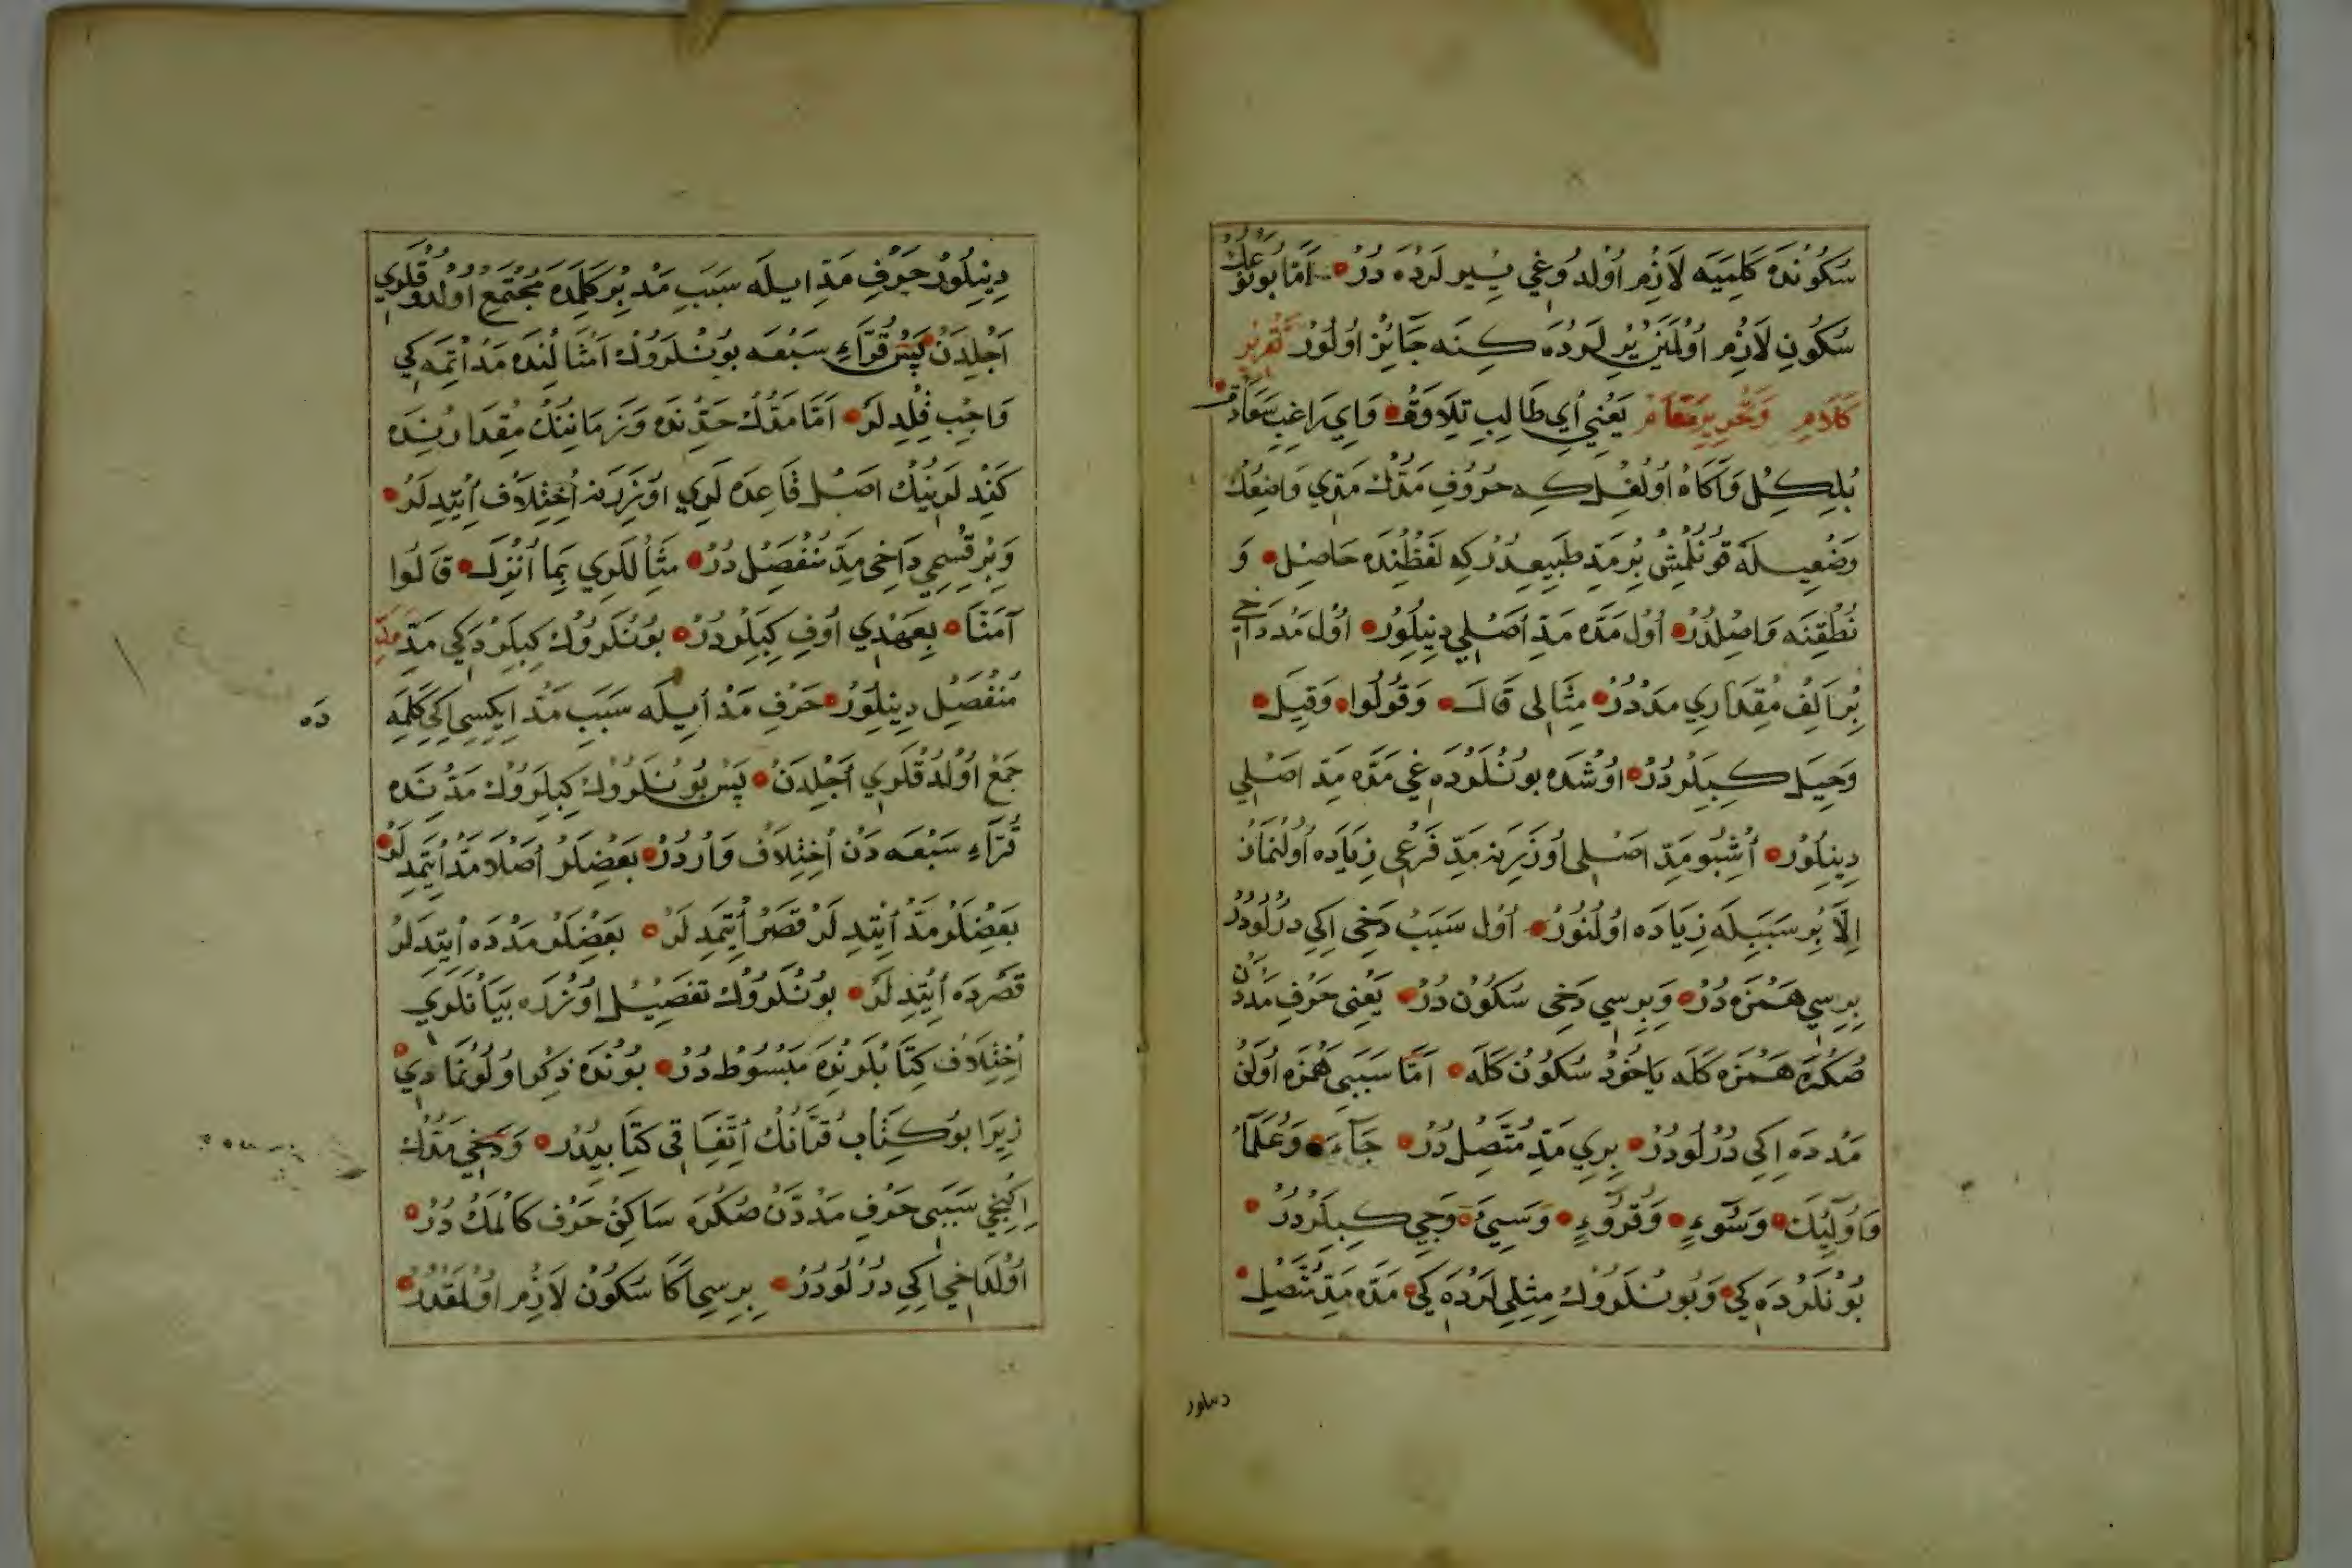 سُكُونْدَه كَلِمَيَه لَازِمْ اُولْدُوغِي يِيرلَرْدَه دُرْ اَمَّا بُونُوڭ عَكْ
سُكُونِ لَازِمْ اُولْمَيَنْ يِرْلَرْدَه كِنَه جَائِزْ اُولُورْ تَقْرِيرِ
كَلَامْ وَتَحْرِيرِ مَقَامْ يَعْنِي اَيْ طَالِبِ تِلَاوَتْ وَاَيْ رَاغِبِ سَعَادَتْ
بُلْكِلْ وَآكَاهْ اُولْغِلْ كِه حُرُوفِ مَدُّكْ مَدِّي وَاضِعُكْ
وَضْعِيلَه قُونُلْمِشْ بِرْ مَدِّ طَبِيعِدُرْ كِه لَفْظِنْدَه حَاصِلْ وَ
نُطْقِنَه وَاصِلْدُرْ اُولْ مَدَّه مَدِّ اَصْلِي دِينِلُورْ اُولْ مَدْ دَاخِي
بِرْ اَلِفْ مِقْدَارِي مَدْدُرْ مِثَالِى قَالَ وَقُولُوا وَقِيلَ
وَحِيلَ كِبِيلُرْدُرْ اُوشْدَه بُونْلَرْدَه غِي مَدَّه مَدِّ اَصْلِي
دِينِلُورْ اُشْبُو مَدِّ اَصْلِى اُوزَرِينَه مَدِّ فَرْعِى زِيَادَه اُولُنْمَازْ
اِلَّا بِرْ سَبَبِلَه زِيَادَه اُولُنُورْ اُولْ سَبَبْ دَخِى اِكِي دُرْلُودُرْ
بِرِسِي هَمْزَه دُرْ وَبِرِسِي دَخِى سُكُونْ دُرْ يَعْنِى حَرْفِ مَدْدَنْ
صُكْرَه هَمْزَه كَلَه يَاخُودْ سُكُونْ كَلَه اَمَّا سَبَبِى هَمْزَه اُولَنْ
مَدْدَه اِكِي دُرْلُودُرْ بِرِي مَدِّ مُتَّصِلْ دُرْ جَآءَ وَعُلَمَاءُ
وَاُولٰٓئِكَ وَسُوءٍ وَقُرُوءٍ وَسِيئَ وَجِيءَ كِبِيلَرْدُرْ
بُونْلَرْدَه كِي وَبُونْلَرُوكْ مِثْلِي لَرْدَه كِي مَدَّه مَدِّ مُتَّصِلْ
دينلور
دِينِلُورْ حَرْفِ مَدِّ ايلَه سَبَبِ مَدْ بِرْ كَلِمَدَه مُجْتَمِعْ اُولْدُوقْلَرِي
اَجْلِدَنْ پَسْ قُرَّاءِ سَبْعَه بُونْلَرُوكْ اَمْثَالِنْدَه مَدْ اِتْمَه كِي
وَاجِبْ قِلْدِيلَرْ اَمَّا مَدُّكْ حَدِّنْدَه وَزَمَانِنُكْ مِقْدَارِنْدَه
كَنْدِلَرِينُكْ اَصْلِ قَاعِدَه لَرِي اُوزَرِينَه اِخْتِلَافْ اِيتْدِلَرْ
وَبِرْ قِسْمِي دَاخِى مَدِّ مُنْفَصِلْ دُرْ مِثَالْلَرِي بِمَا اُنْزِلَ قَالُوا
آمَنَّا بِعَهْدِي اُوفِ كِبِيلَرْدُرْ بُونْلَرُوكْ كِبِيلَرْدَه كِي مَدِّ مَدِّ
مُنْفَصِلْ دِينِلُورْ حَرْفِ مَدْ اِيلَه سَبَبِ مَدْ اِيكِسِي اِكِي كَلِمَه
دَه
جَمْعْ اُولْدُقْلَرِي اَجْلِدَنْ پَسْ بُونْلَرُوكْ كِبِيلَرُوكْ مَدِّنْدَه
قُرَّاءِ سَبْعَه دَنْ اِخْتِلَافْ وَارْدُرْ بَعْضِلَرْ اَصْلَا مَدْ اِيتْمَدِلَرْ
بَعْضِلَرْ مَدْ اِيْتِدِلَرْ قَصْرْ اِيتْمَدِلَرْ بَعْضِلَرْ مَدْدَه اِيتْدِلَرْ
قَصْرْدَه اِيْتِدِلَرْ بُونْلَرُوكْ تَفْصِيلْ اُوزْرَه بَيَانْلَرِي
اِخْتِلَافْ كِتَابْلَرِنْدَه مَبْسُوطْ دُرْ بُونْدَه ذِكْر اُولُونْمَادِي
زِيرَا بُو كِتَابْ قُرْآنُكْ اِتِّفَاقِى كِتَابِيدُرْ وَدَخِي مَدُّكْ
اِكِنْجِي سَبَبِى حَرْفِ مَدْدَنْ صُكْرَه سَاكِنْ حَرْفْ كَلْمَكْ دُرْ
اُولْدَاخِي اِكِي دُرْلُودُرْ بِرِسِي آكَا سُكُونْ لَازِمْ اُولْمَقْدُرْ